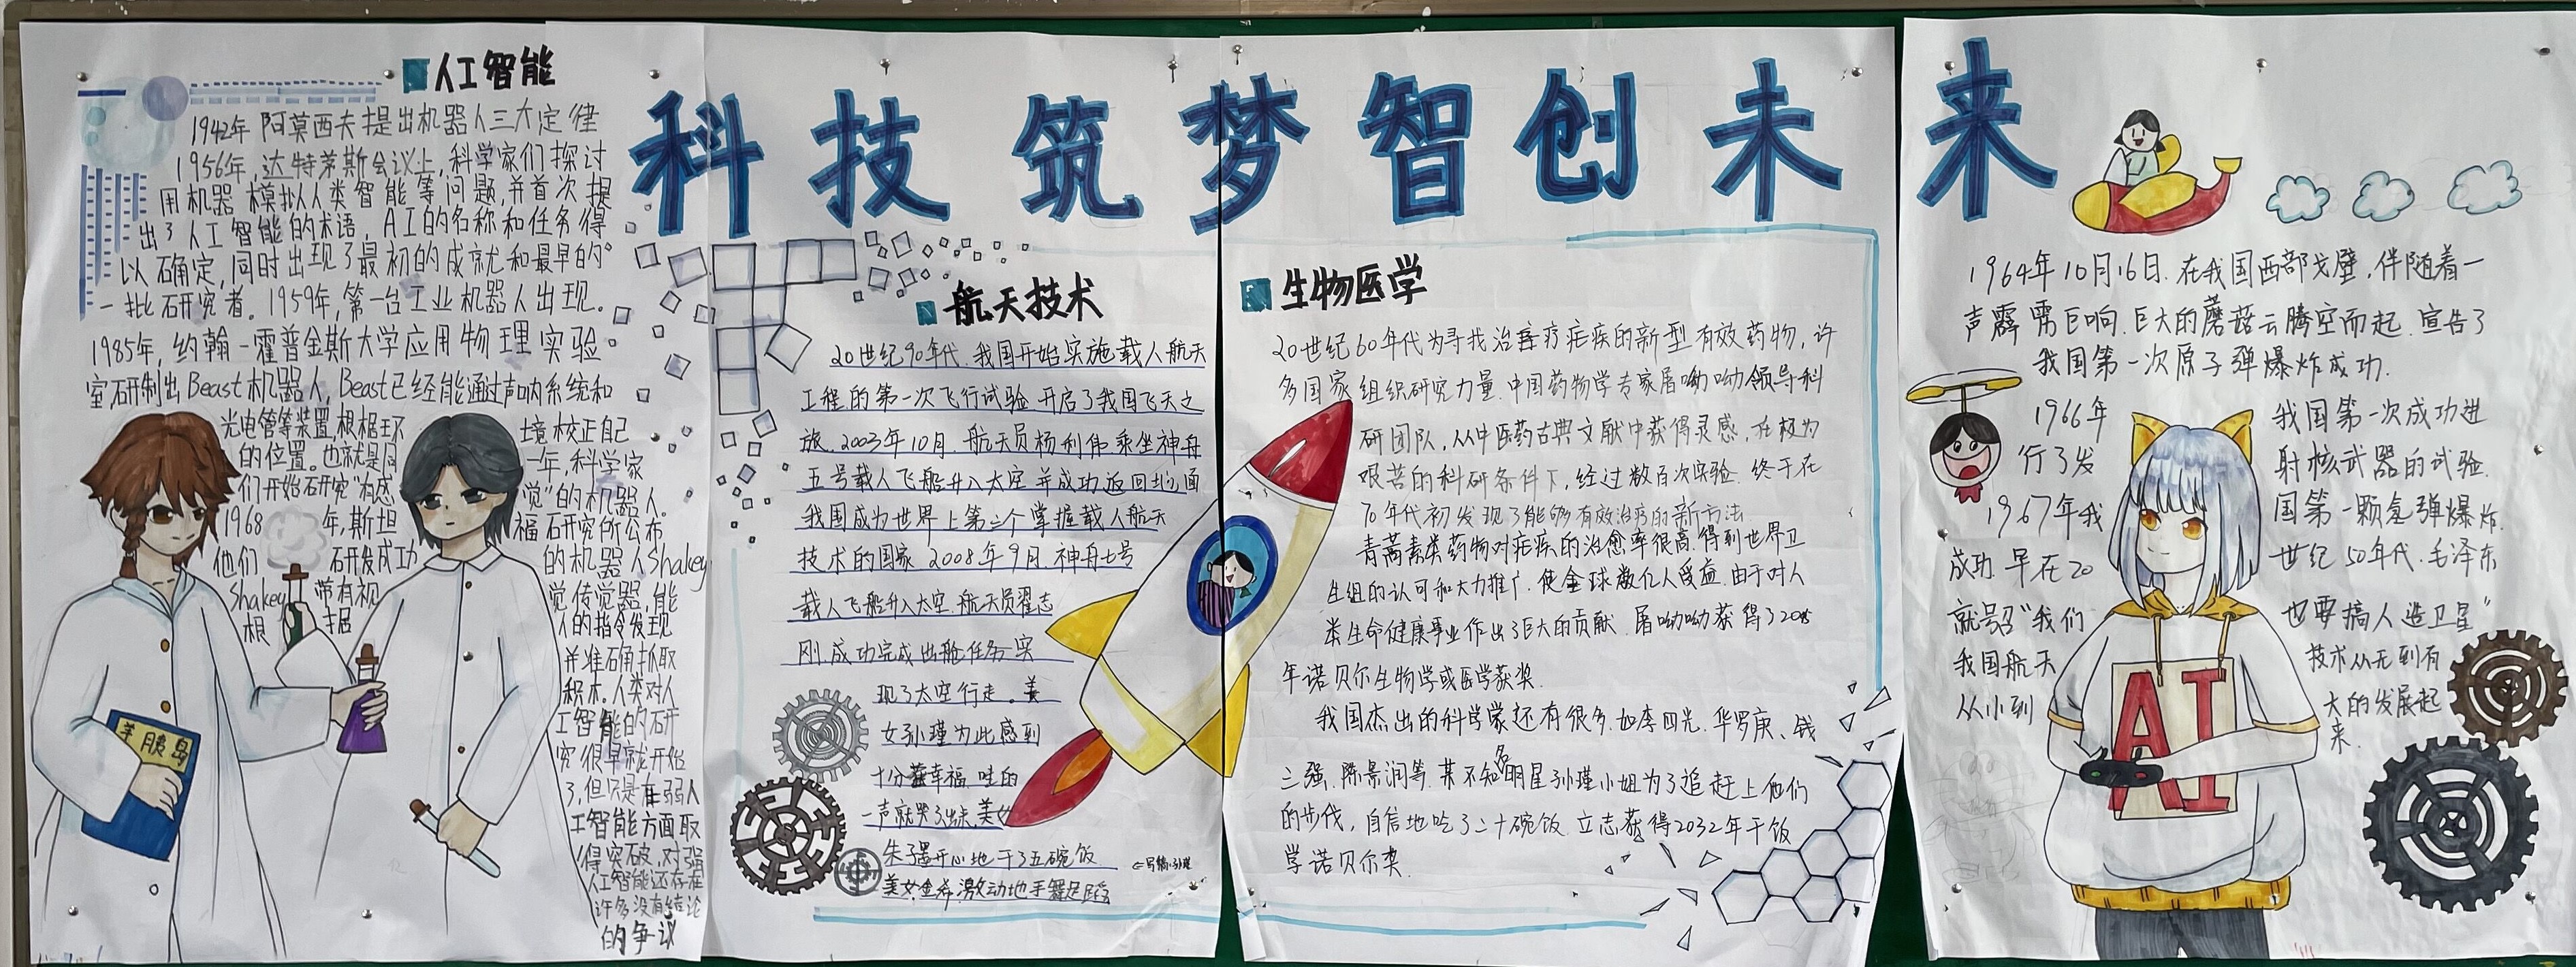 科技筑梦智创未来
人工智能
1942年阿莫西夫提出机器人三大定律
1956年,达特茅斯会议上,科学家们探讨
用机器模拟人类智能等问题,并首次提
出了人工智能的术语,AI的名称和任务得
以确定,同时出现了最初的成就和最早的
一批研究者。1959年,第一台工业机器人出现。
1985年,约翰-霍普金斯大学应用物理实验
室研制出Beast机器人,Beast已经能通过声呐系统和
光电管等装置,根据环境校正自己
的位置。也就是同一年,科学家
们开始研究"有感觉"的机器人。
1968年,斯坦福研究所公布
他们研发成功的机器人Shakey
Shakey带有视觉传觉器,能
根据人的指令发现
并准确抓取
积木.人类对人
工智能的研
究很早就开始
了,但只是在弱人
工智能方面取
得突破,对强
人工智能还存在
许多没有结论
的争议
羊胰岛
航天技术
20世纪90年代.我国开始实施载人航天
工程的第一次飞行试验.开启了我国飞天之
旅.2003年10月.航天员杨利伟乘坐神舟
五号载人飞船升入太空并成功返回地面
我国成为世界上第三个掌握载人航天
技术的国家.2008年9月.神舟七号
载人飞船升入太空.航天员翟志
刚成功完成出舱任务实
现了太空行走。美
女孙瑾为此感到
十分幸福.哇的
一声就哭了出来.美女
朱子墨开心地干了五碗饭
美女金希激动地手舞足蹈
生物医学
20世纪60年代为寻找治疗疟疾的新型有效药物,许
多国家组织研究力量.中国药物学专家屠呦呦领导科
研团队,从中医药古典文献中获得灵感,在极为
艰苦的科研条件下,经过数百次实验.终于在
70年代初发现了能够有效治疗的新方法
青蒿素类药物对疟疾的治愈率很高.得到世界卫
生组的认可和大力推广.使全球数亿人受益.由于对人
类生命健康事业作出了巨大的贡献.屠呦呦获得了2015
年诺贝尔生物学或医学获奖.
我国杰出的科学家还有很多.如李四光.华罗庚、钱
三强.陈景润等.某不知名明星孙瑾小姐为了追赶上他们
的步伐,自信地吃了二十碗饭.立志获得2032年干饭
学诺贝尔奖.
1964年10月16日.在我国西部戈壁.伴随着一
声霹雳巨响.巨大的蘑菇云腾空而起.宣告了
我国第一次原子弹爆炸成功.
1966年我国第一次成功进
行了发射核武器的试验.
1967年我国第一颗氢弹爆炸
成功.早在20世纪50年代.毛泽东
就号召"我们也要搞人造卫星"
我国航天技术从无到有
从小到大的发展起
来.
AI